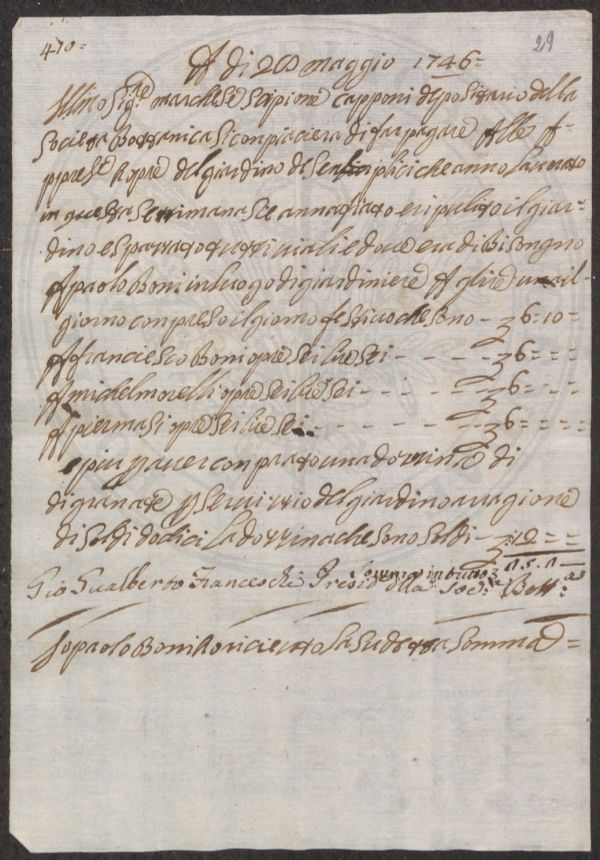 470=
29
A di 28 maggio 1746=
Ill.mo Sig.re marchese Scipione Capponi depositario della
Societa Bottanica si conpiacera di far pagare Alle A-
pprese hopre del giardino de Senplici che anno lavorato
in questa settimana see annafiato e ripulito il giar-
dino e spazzato tutti i viali e dove era di Bisongno
A paolo Boni in luogo di giardiniere A lire una il
giorno conpreso il giorno festivo che sono - 6=10=
A franciesco Boni opre sei lire sei - - - - 6= = =
A michel morelli opre sei lire sei - - - - - 6= - =
A pier masi opre sei lire sei - - - - - - - 6= = =
e piu p aver conprato una dozzina di
di granate p servizzio del giardino a ragione
di soldi dodici la dozzina che sono soldi - 12 = =
Somma in tutto
Gio Gualberto Franceschi Presid. della Soc: Bott:ca
Io paolo Boni ho ricievuto la sudetta somma =